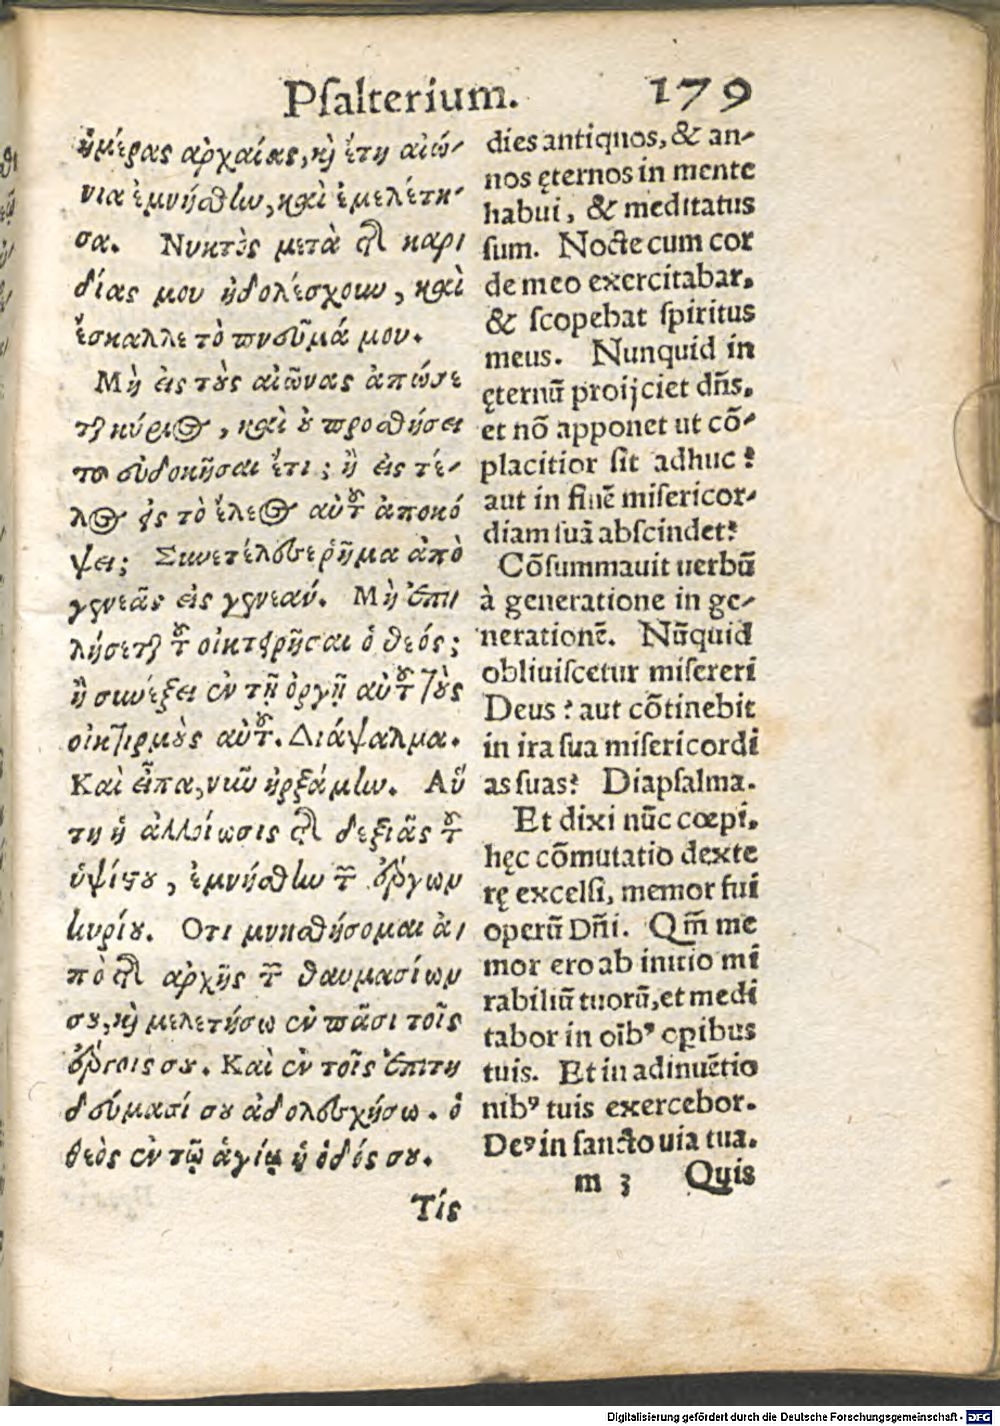 Pſalterium. 179
ἡμέρας ἀρχαίας, κỳ ἔτη αἰώ-
νια ἐμνήσθην, καὶ ἐμελέτη-
σα. Νυκτὸς μετὰ τῆς καρ
δίας μου ἠδολέσχουν, καὶ
ἔσκαλλε τὸ πνεῦμά μου.
Μὴ εἰς τοὺς αἰῶνας ἀπώσε
ται κύριος, καὶ οὐ προσθήσει
τοῦ εὐδοκῆσαι ἔτι; ἢ εἰς τέ-
λος εἰς τὸ ἔλεος αὐτοῦ ἀποκό
ψει; Συνετέλεσε ῥῆμα ἀπὸ
γενεᾶς εἰς γενεάν. Μὴ ἐπι
λήσεται τοῦ οἰκτειρῆσαι ὁ θεός;
ἢ συνέξει ἐν τῇ ὀργῇ αὐτοῦ τοὺς
οἰκτιρμοὺς αὐτοῦ. Διάψαλμα.
Καὶ εἶπα, νῦν ἠρξάμην. Αὕ
τη ἡ ἀλλοίωσις τῆς δεξιᾶς τοῦ
ὑψίστου, ἐμνήσθην τῶν ἔργων
κυρίου. Οτι μνησθήσομαι ἀ
πὸ τῆς ἀρχῆς τῶν θαυμασίων
σου, κỳ μελετήσω ἐν πᾶσι τοῖς
ἔργοις σου. Καὶ ἐν τοῖς ἐπιτη
δεύμασί σου ἀδολεσχήσω. ὁ
θεὸς ἐν τῷ ἁγίῳ ἡ ὁδός σου.
Τίς
dies antiquos, & an-
nos ęternos in mente
habui, & meditatus
ſum. Nocte cum cor
de meo exercitabar.
& ſcopebat ſpiritus
meus. Nunquid in
ęternū proijciet dn̄s.
et nō apponet ut cō-
placitior ſit adhuc?
aut in finē miſericor-
diam ſuā abſcindet?
Cōſummauit uerbū
à generatione in ge-
nerationē. Nūquid
obliuiſcetur miſereri
Deus? aut cōtinebit
in ira ſua miſericordi
as ſuas? Diapſalma.
Et dixi nūc cœpi.
hęc cōmutatio dexte
rę excelſi, memor fui
operū Dn̄i. Qm̄ me
mor ero ab initio mi
rabiliū tuorū, et medi
tabor in oīb⁹ opibus
tuis. Et in adinuētio
nib⁹ tuis exercebor.
De⁹ in ſancto uia tua.
m 3 Quis
Digitalisierung gefördert durch die Deutsche Forschungsgemeinschaft - DFG